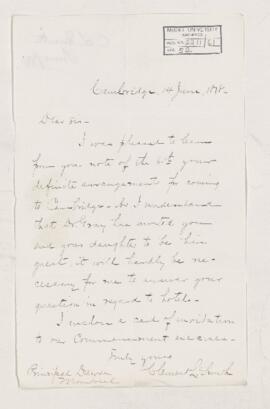 McGILL UNIVERSITY
ARCHIVES
ACC. NO. 2211/61
REF. 52
Cambridge, 14 June, 1878.
Dear Sir,
I was pleased to learn
from your note of the 10th your
definite arrangements for coming
to Cambridge. As I understand
that Dr. Gray has invited you
and your daughter to be his
guest, it will hardly be ne-
cessary for me to answer your
question in regard to hotels.
I inclose a card of invitation
to our Commencement exercises.
Truly yours
Clement L. Smith
Principal Dawson
Montreal